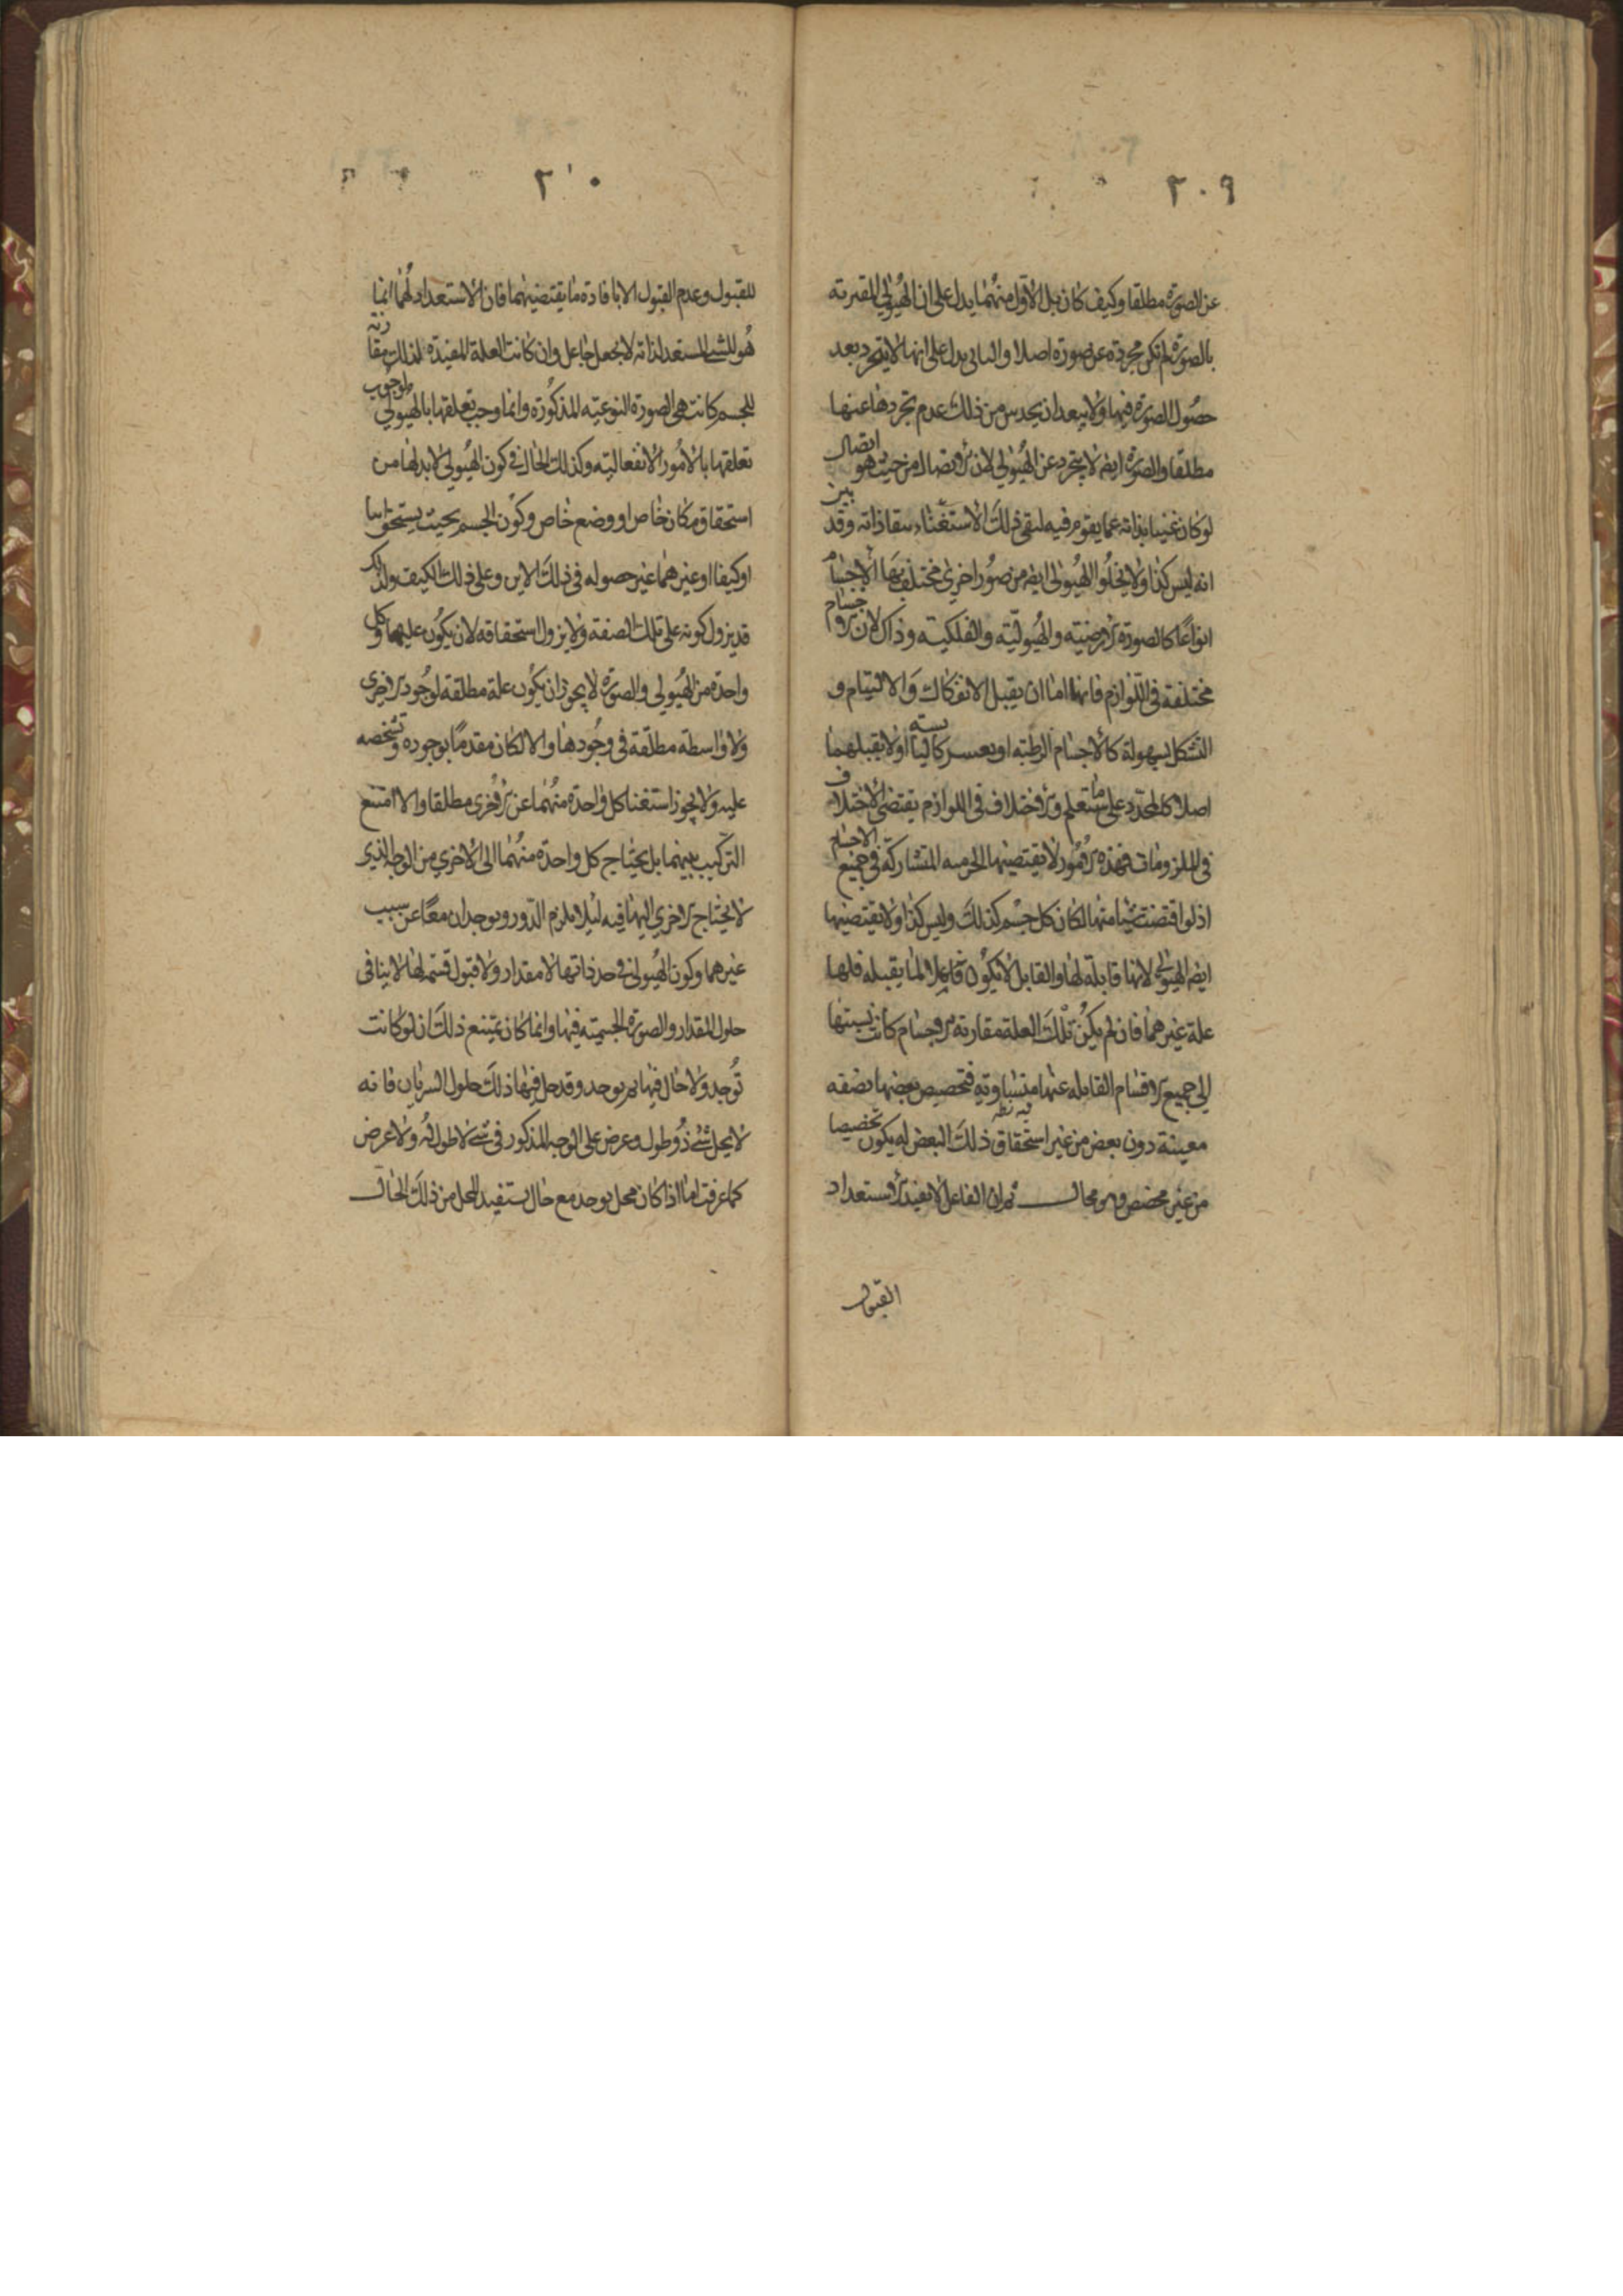 ٢٠٩
عن الصورة مطلقا وكيف كان بل الاول منهما يدل على ان الهيولى المقترنة
بالصورة لم تكن مجردة عن صورة اصلا والثانى يدل على انها لا يتجرد بعد
حصول الصورة فيها ولا يبعد ان يحدس من ذلك عدم تجردها عنها
مطلقا والصورة ايضا لا يتجرد عن الهيولى لان الاتصال من حيث هو اتصال
لو كان غنيا بذاته عما يقوم فيه لبقى ذلك الاستغناء ببقا ذاته وقد بين
انه ليس كذا ولا يخلو الهيولى ايضا من صور اخرى مختلف بها الاجسام
انواعا كالصورة الارضيته والهيوليّة والفلكيته وذاك لان الاجسام
مختلفة فى اللوازم فانها اما ان يقبل الانفكاك والالتيام و
التشكل بسهولة كالاجسام الرطبة او بعسر كاليابسته او لا يقبلهما
اصلا كالمحدد على ما ستعلم والاختلاف فى اللوازم يقتضى الاختلاف
فى الملزومات فهذه الامور لا يقتضيها الجرميه المتشاركة فى جميع الاجسام
اذ لو اقتضت شيا منها لكان كل جسم كذلك وليس كذا ولا يقتضيها
ايضا الهيولى لانها قابلة لها والقابل لا يكون فاعلا لما يقبله فلها
علة غيرهما فان لم يكن تلك العلة مقارنه الاجسام كانت نسبتها
الى جميع الاقسام القابله عنها متساوية فتخصيص بعضها بصفه
معينة دون بعض من غير استحقاق ذلك البعض له يكون تخصيصا
من غير مخصص وهو محال ثم ان الفاعل لا يفيد الاستعداد
القبول
٢١٠
للقبول وعدم القبول الا بافادة ما يقتضيهما فان الاستعداد لهما انما
هو للشى المستعد لذاته لا بجعل جاعل وان كانت العلة المفيدة لذلك مقارنه
للجسم كانت هى الصورة النوعيّه المذكورة وانما وجب تعلقها بالهيولى لوجوب
تعلقها بالامور الانفعاليته وكذلك الحال فى كون الهيولى لا بد لها من
استحقاق مكان خاص او وضع خاص وكون الجسم بحيث يستحق اينا
او كيفا او غيرهما غير حصوله فى ذلك الاين وعلى ذلك الكيف ولذلك
قد يزول كونه على تلك الصفة ولا يزول استحقاقه لان يكون عليهما وكل
واحدة من الهيولى والصورة لا يجوز ان يكون علة مطلقه لوجود الاخرى
ولا واسطة مطلقة فى وجودها والا لكان مقدما بوجوده وتشخصه
عليه ولا يجوز استغنا كل واحدة منهما عن الاخرى مطلقا والا امتنع
التركيب بينهما بل يحتاج كل واحدة منهما الى الاخرى من الوجه الذى
لا يحتاج الاخرى اليها فيه ليلا يلزم الدور ويوجدان معا عن سبب
غيرهما وكون الهيولى فى حد ذاتها لا مقدار ولا قبول قسمه لها لا ينافى
حلول المقدار والصورة الجسميته فيها وانما كان يمتنع ذلك ان لو كانت
تُوجد ولا حال فيها ثم يوجد وقد حل فيها ذلك حلول السريان فانه
لا يحل شى ذو طول وعرض على الوجه المذكور فى شى لا طول له ولا عرض
كما عرفت اما اذا كان محل يوجد مع حال يستفيد المحل من ذلك الحال